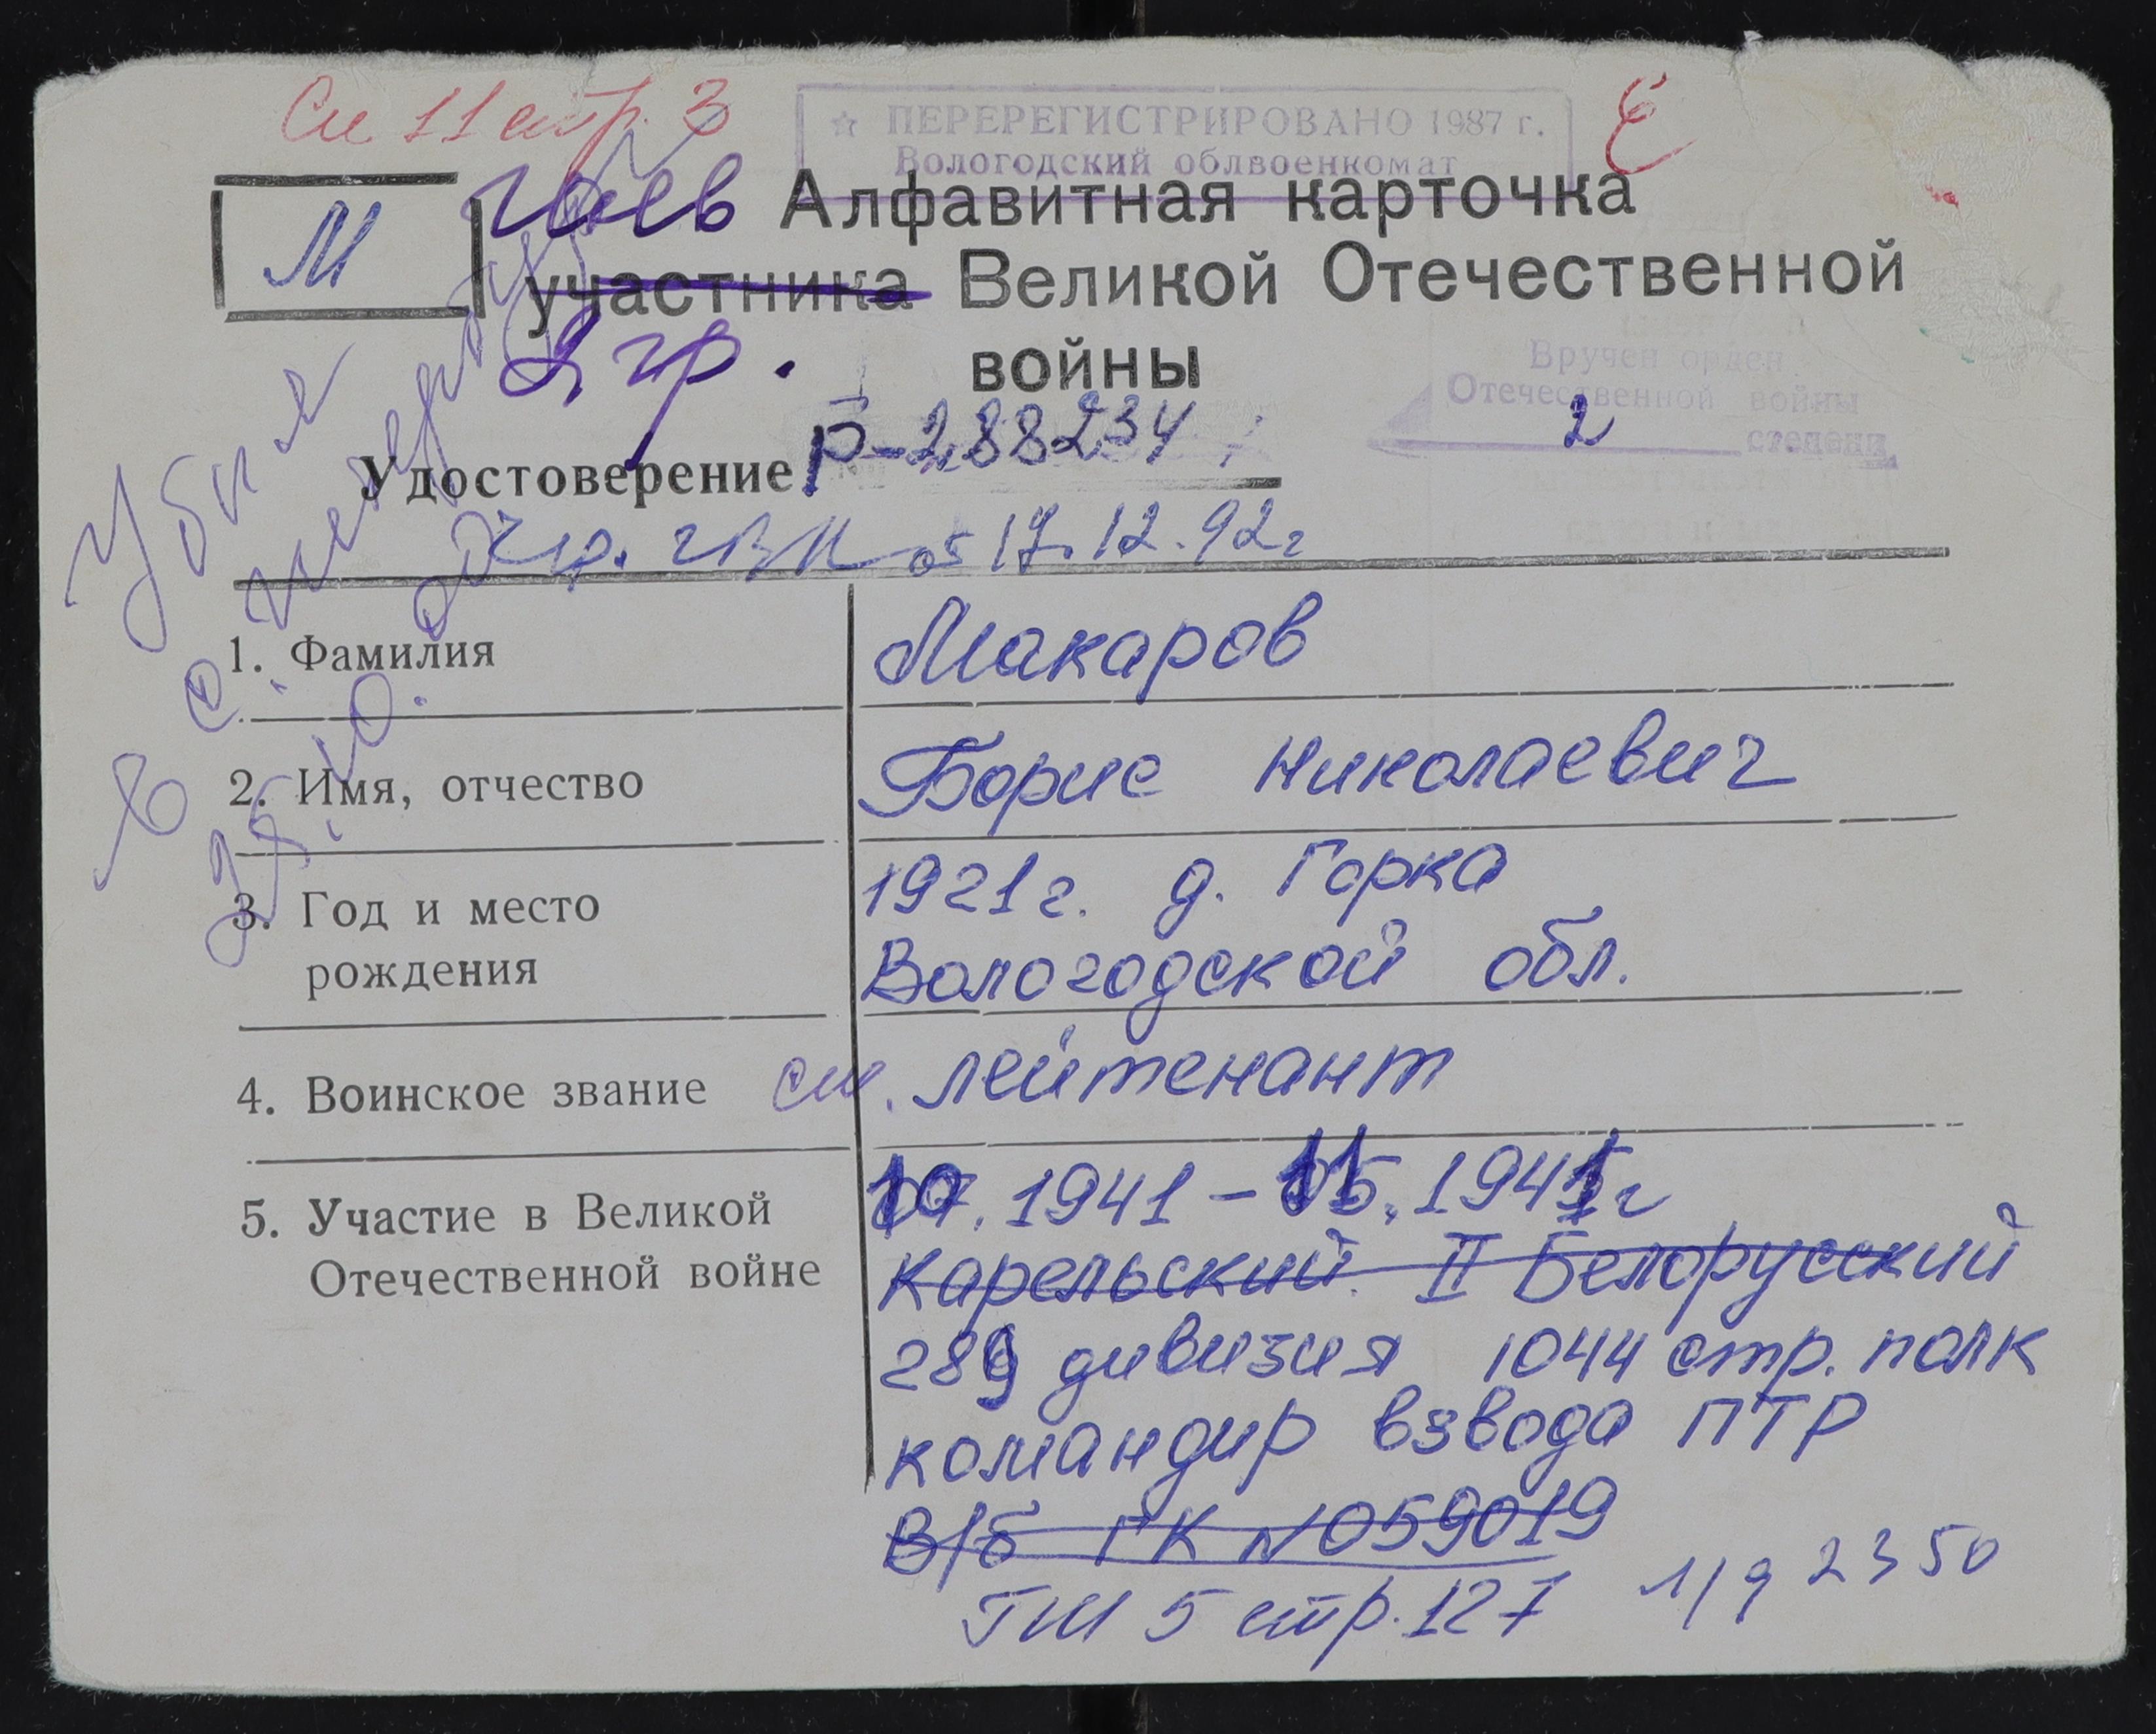 См 11 стр. 3
☆ ПЕРЕРЕГИСТРИРОВАНО 1987 г.
Вологодский облвоенкомат
М
Алфавитная карточка
участника Великой Отечественной
войны
2 гр.
Вручен орден
Отечественной войны
2 степени
Удостоверение Р-288234
ГВК от 17.12.92г
Убыл
в
1. Фамилия Макаров
2. Имя, отчество Борис Николаевич
3. Год и место 1921г. д. Горка
рождения Вологодской обл.
4. Воинское звание ст. лейтенант
5. Участие в Великой 10.1941-11.1941г
Отечественной войне Карельский. II Белорусский
289 дивизия 1044 стр. полк
командир взвода ПТР
В/б ГК N059019
5 стр. 127
1/92350